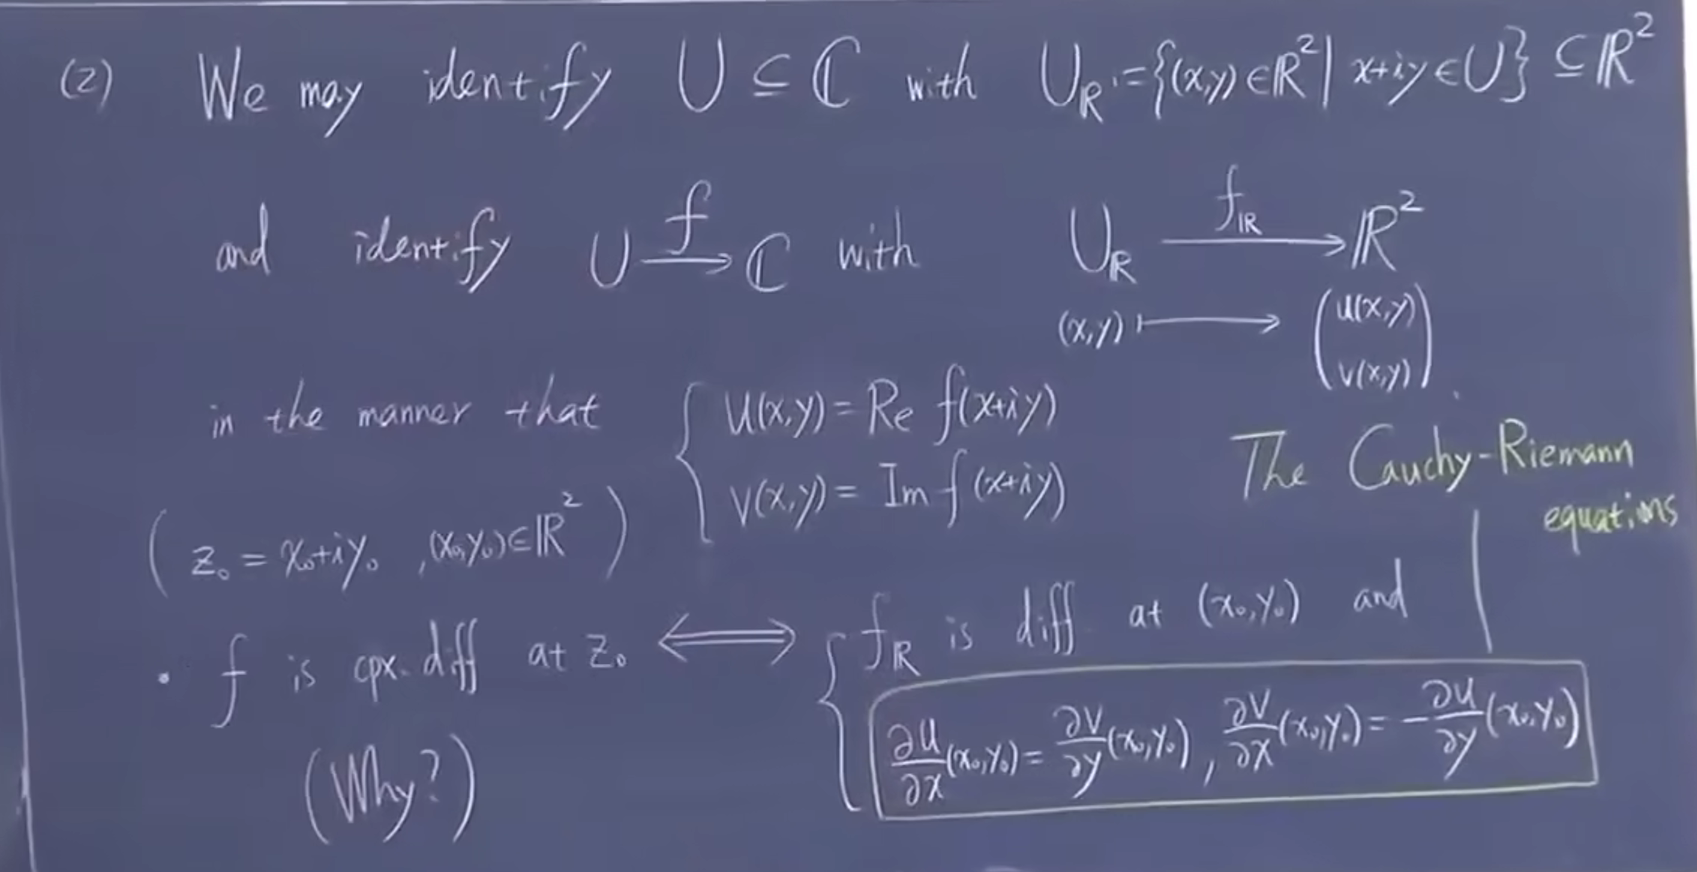 (2) We may identify U ⊆ ℂ with U_ℝ := {(x,y) ∈ ℝ² | x+iy ∈ U} ⊆ ℝ²
and identify U \xrightarrow{f} ℂ with U_ℝ \xrightarrow{f_ℝ} ℝ²
(x,y) ⟼ \begin{pmatrix} u(x,y) \\ v(x,y) \end{pmatrix}.
in the manner that { u(x,y) = Re f(x+iy)
v(x,y) = Im f(x+iy)
The Cauchy-Riemann
equations
(z₀ = x₀+iy₀, (x₀,y₀) ∈ ℝ²)
· f is cpx. diff at z₀ ⟺ { f_ℝ is diff at (x₀,y₀) and
∂u/∂x (x₀,y₀) = ∂v/∂y (x₀,y₀), ∂v/∂x (x₀,y₀) = -∂u/∂y (x₀,y₀)
(Why?)